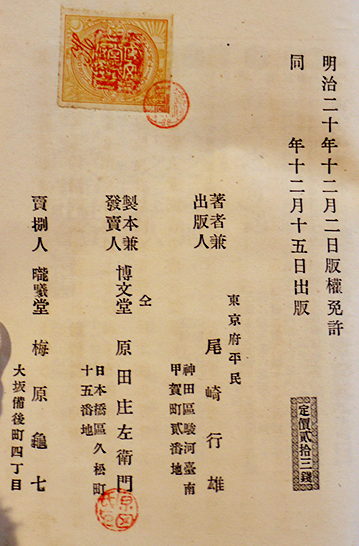 明治二十年十二月二日版權免許
同　年十二月十五日出版
定價貳拾三錢
東京府平民
著者兼出版人　尾崎行雄
神田區駿河臺南甲賀町貳番地
仝
製本兼發賣人　博文堂　原田庄左衛門
日本橋區久松町十五番地
賣捌人　曨曦堂　梅原龜七
大坂備後町四丁目